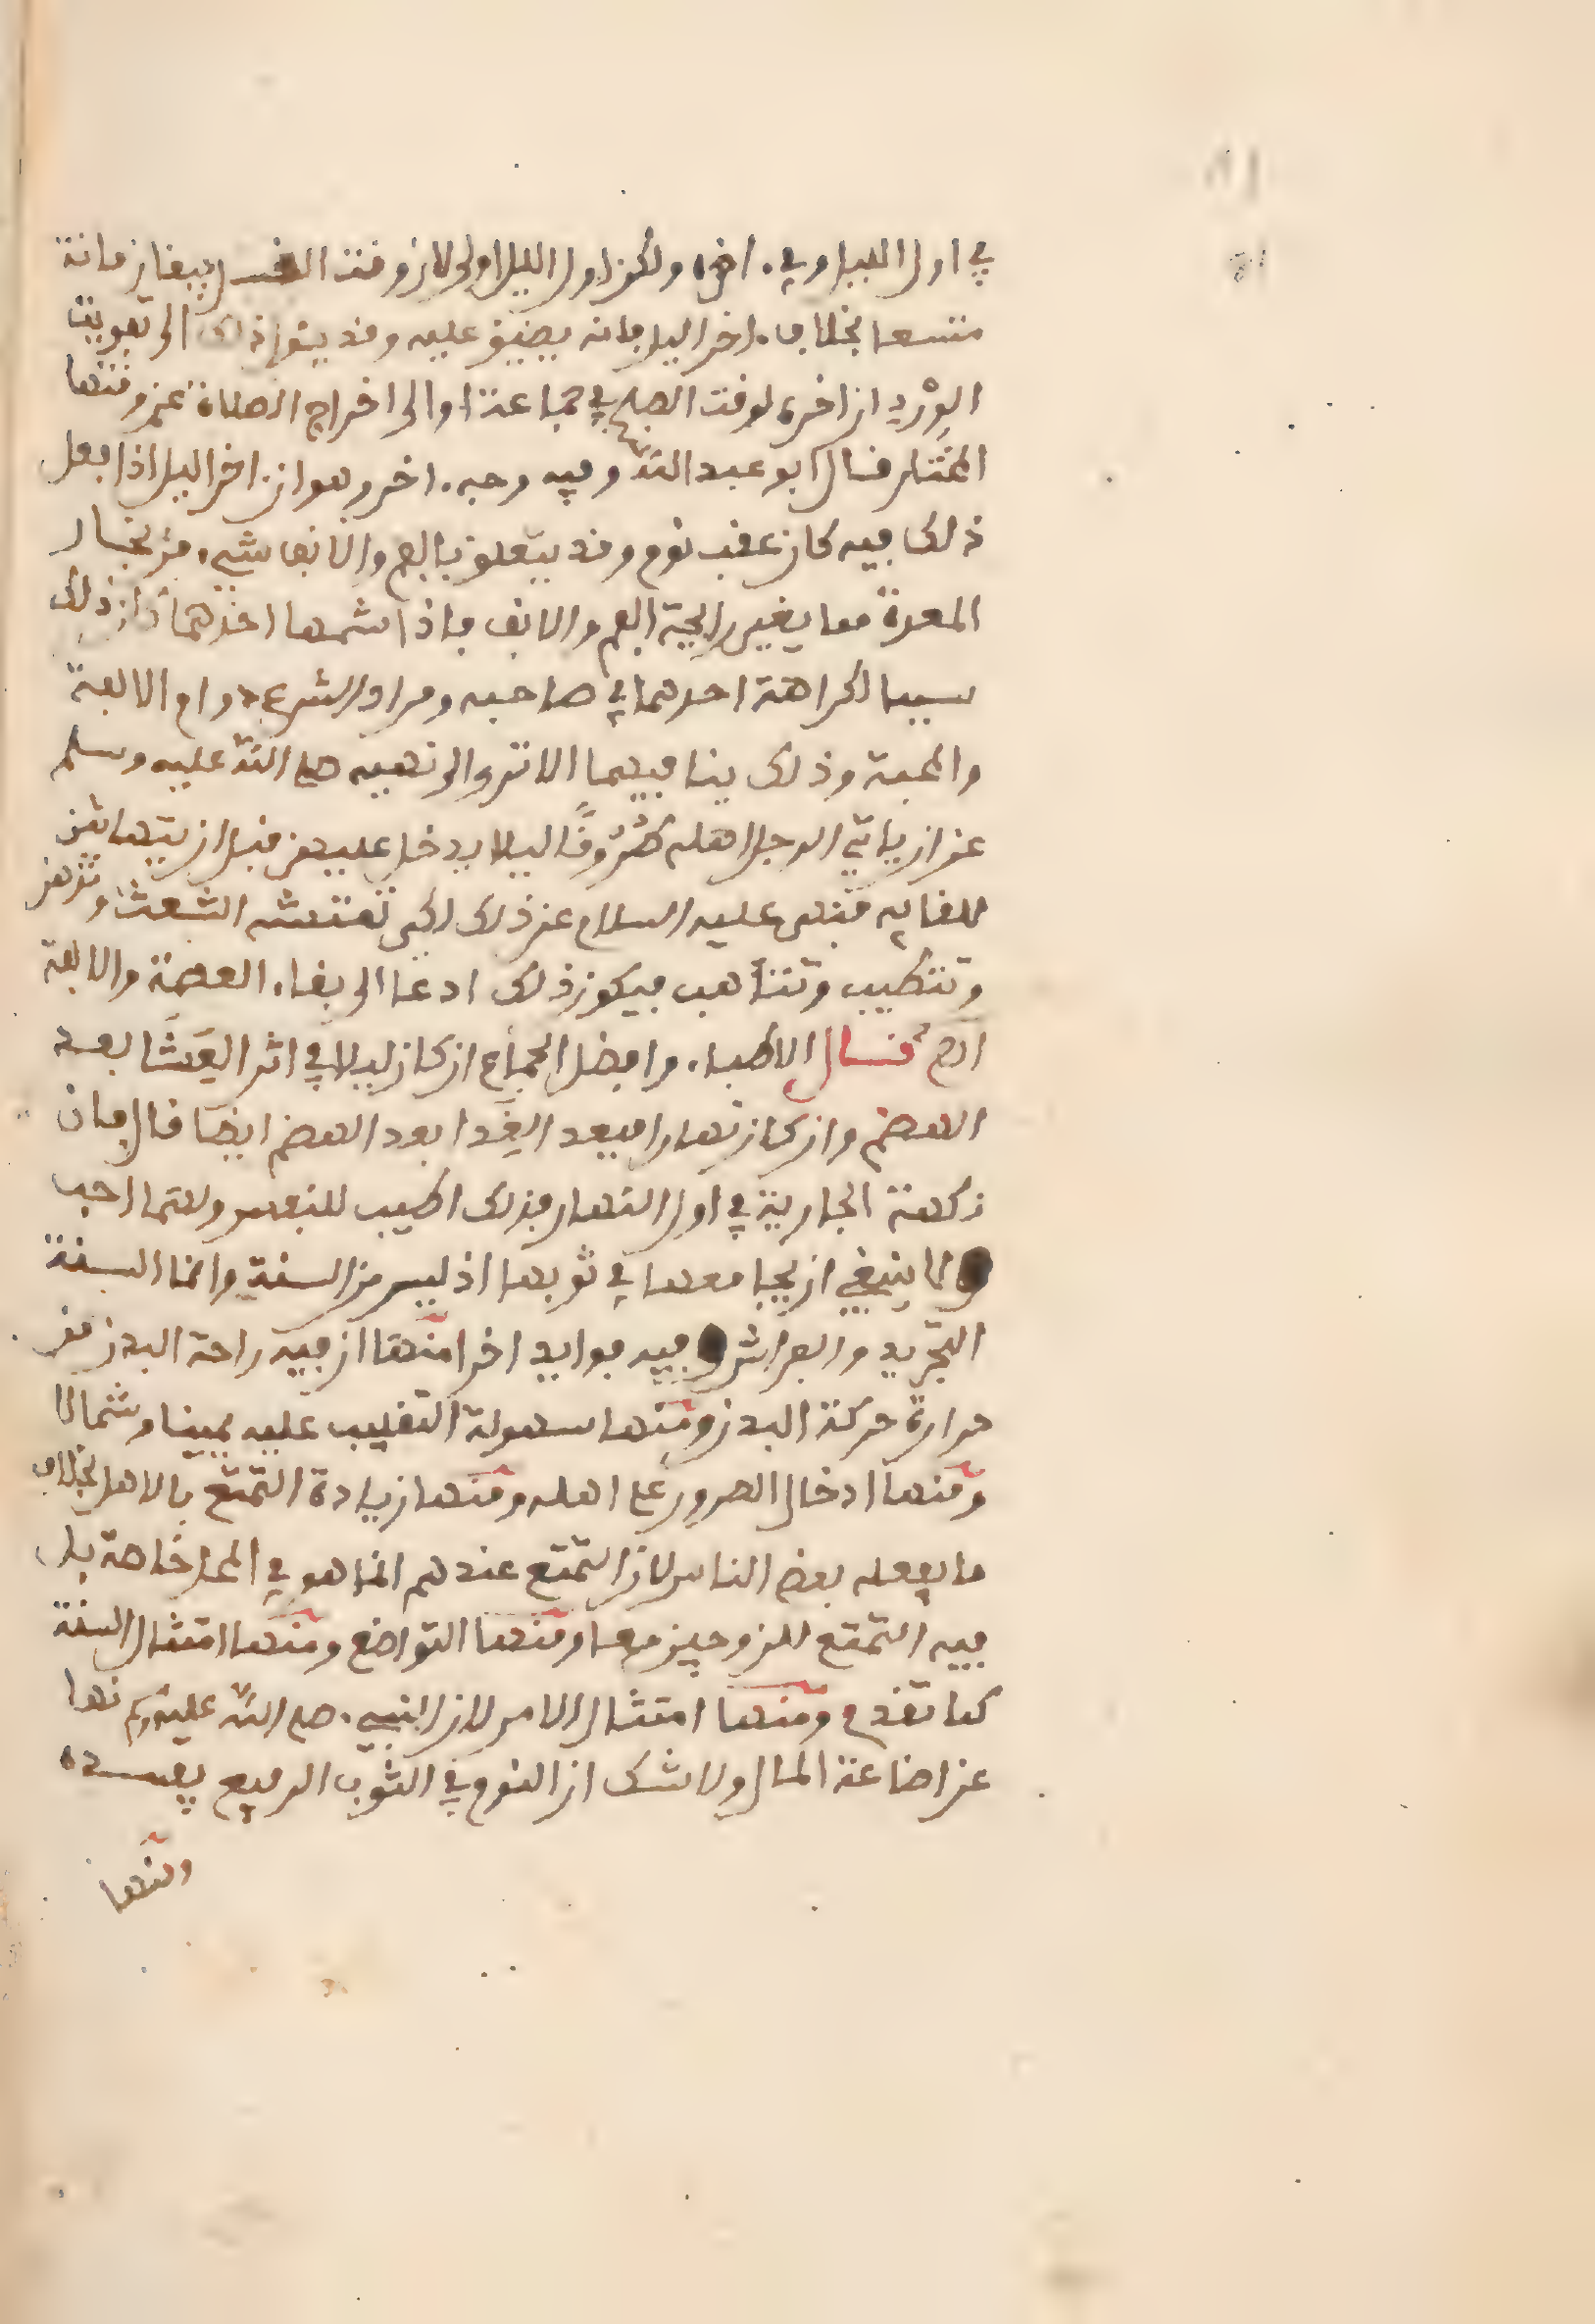 في اول الليل وفي ءاخره ولكن اول الليل اولى لان وقت الغسل يبقا زمانه
متسعا بخلاف ءاخر اليل فانه يضيق عليه وقد يئول ذلك الى تفويت
الورد ان اخره لوقت الصبح في جماعة او الى اخراج الصلاة عن وقتها
المختار قال ابو عبد الله وفيه وجه ءاخر وهو ان اخر اليل اذا فعل
ذلك فيه كان عقب نوم وقد يتعلق بالفم والانف شيء من بخار
المعدة مما يغير رايحة الفم والانف فاذا شمها احدهما كان ذلك
سببا لكراهة احدهما في صاحبه ومراد الشرع دوام الالفة
والمحبة وذلك ينافيهما الا ترى الى نهيه صلى الله عليه وسلم
عن ان ياتي الرجل اهله طروقا ليلا يدخل عليهن قبل ان يتهيان
للقايه فنهى عليه السلام عن ذلك لكي تمتشط الشعثا وتدهن
وتتطيب وتتاهب فيكون ذلك ادعا الى بقاء العصمة والالفة
انتهى قال الاطباء وافضل الجماع ان كان ليلا في اثر العشا بعد
الهضم وان كان نهارا فبعد الغدا بعد الهضم ايضا قال فان
نكهة الجارية في اول النهار فذلك اطيب للنفس ولهما احب
ولا ينبغي ان يجامعها في ثوبها اذ ليس من السنة وانما السنة
التجريد والفراش وفيه فوايد اخر منها ان فيه راحة البدن من
حرارة حركة البدن ومنها سهولة التقليب عليه يمينا وشمالا
ومنها ادخال السرور على اهله ومنها زيادة التمتع بالاهل بخلاف
ما يفعله بعض الناس لان التمتع عندهم انما هو في المحل خاصة بل
فيه التمتع للزوجين معا ومنها التواضع ومنها امتثال السنة
كما تقدم ومنها امتثال الامر لان النبيء صلى الله عليه وسلم نها
عن اضاعة المال ولا شك ان النوم في الثوب الرفيع يفسده
ومنها